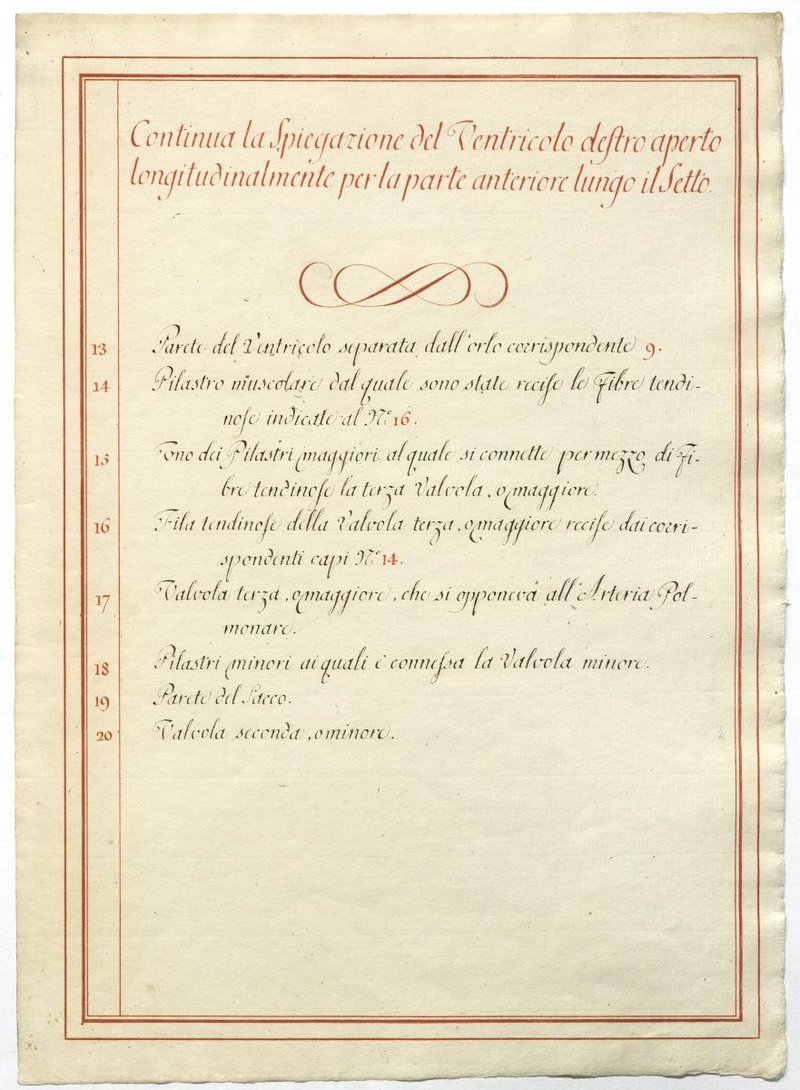 Continua la Spiegazione del Ventricolo destro aperto
longitudinalmente per la parte anteriore lungo il Setto.
13 Parete del Ventricolo separata dall'orlo corrispondente 9.
14 Pilastro muscolare dal quale sono state recise le Fibre tendi-
nose indicate al N.º 16.
15 Uno dei Pilastri maggiori al quale si connette per mezzo di Fi-
bre tendinose la terza Valvola, o maggiore.
16 Fila tendinose della Valvola terza, o maggiore recise dai corri-
spondenti capi N.º 14.
17 Valvola terza, o maggiore, che si opponeva all'Arteria Pol-
monare.
18 Pilastri minori ai quali è connessa la Valvola minore.
19 Parete del Sacco.
20 Valvola seconda, o minore.